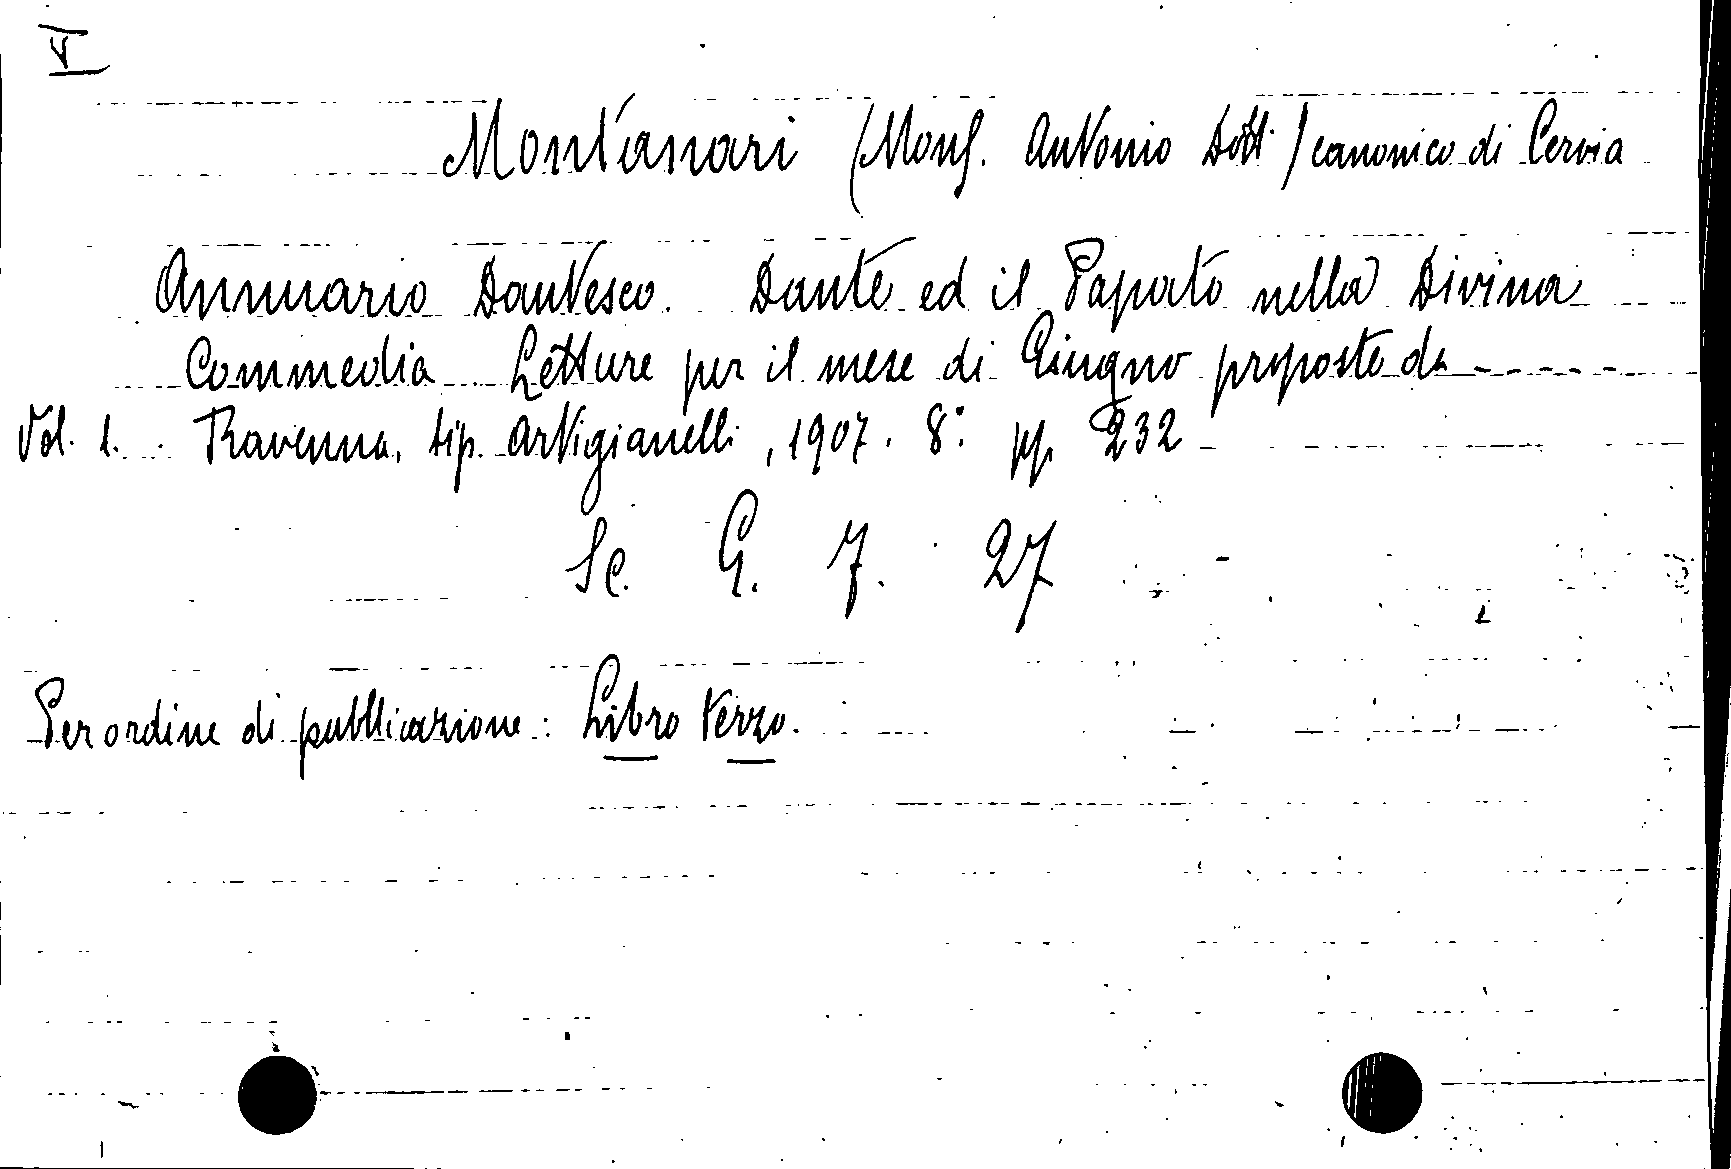 V
Montanari (Mons. Antonio Dott.) canonico di Cervia
Annuario Dantesco. Dante ed il Papato nella Divina
Commedia Letture per il mese di Giugno proposte da ------
Vol. 1. . Ravenna, tip. Artigianelli, 1907. 8.° pp. 232
Sc. G. 7. 27
Per ordine di pubblicazione: Libro terzo.